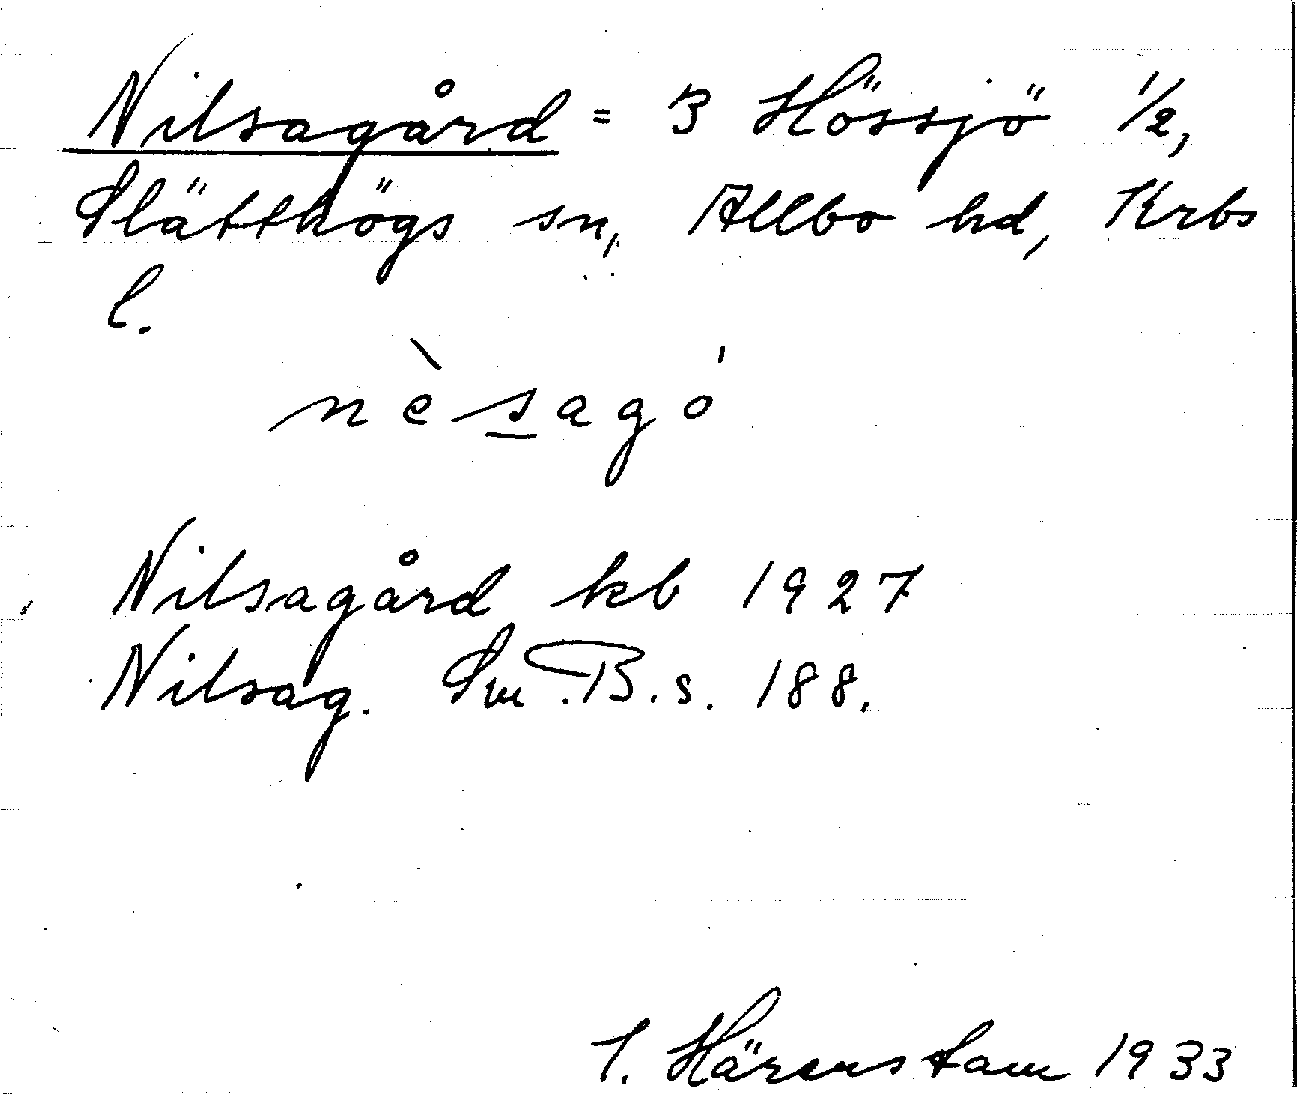 Nilsagård = 3 Hössjö 1/2,
Slätthögs sn, Allbo hd, Krbs
l.
nèsagó
Nilsagård kb 1927
Nilsag. Sm.B.s. 188.
I. Härenstam 1933